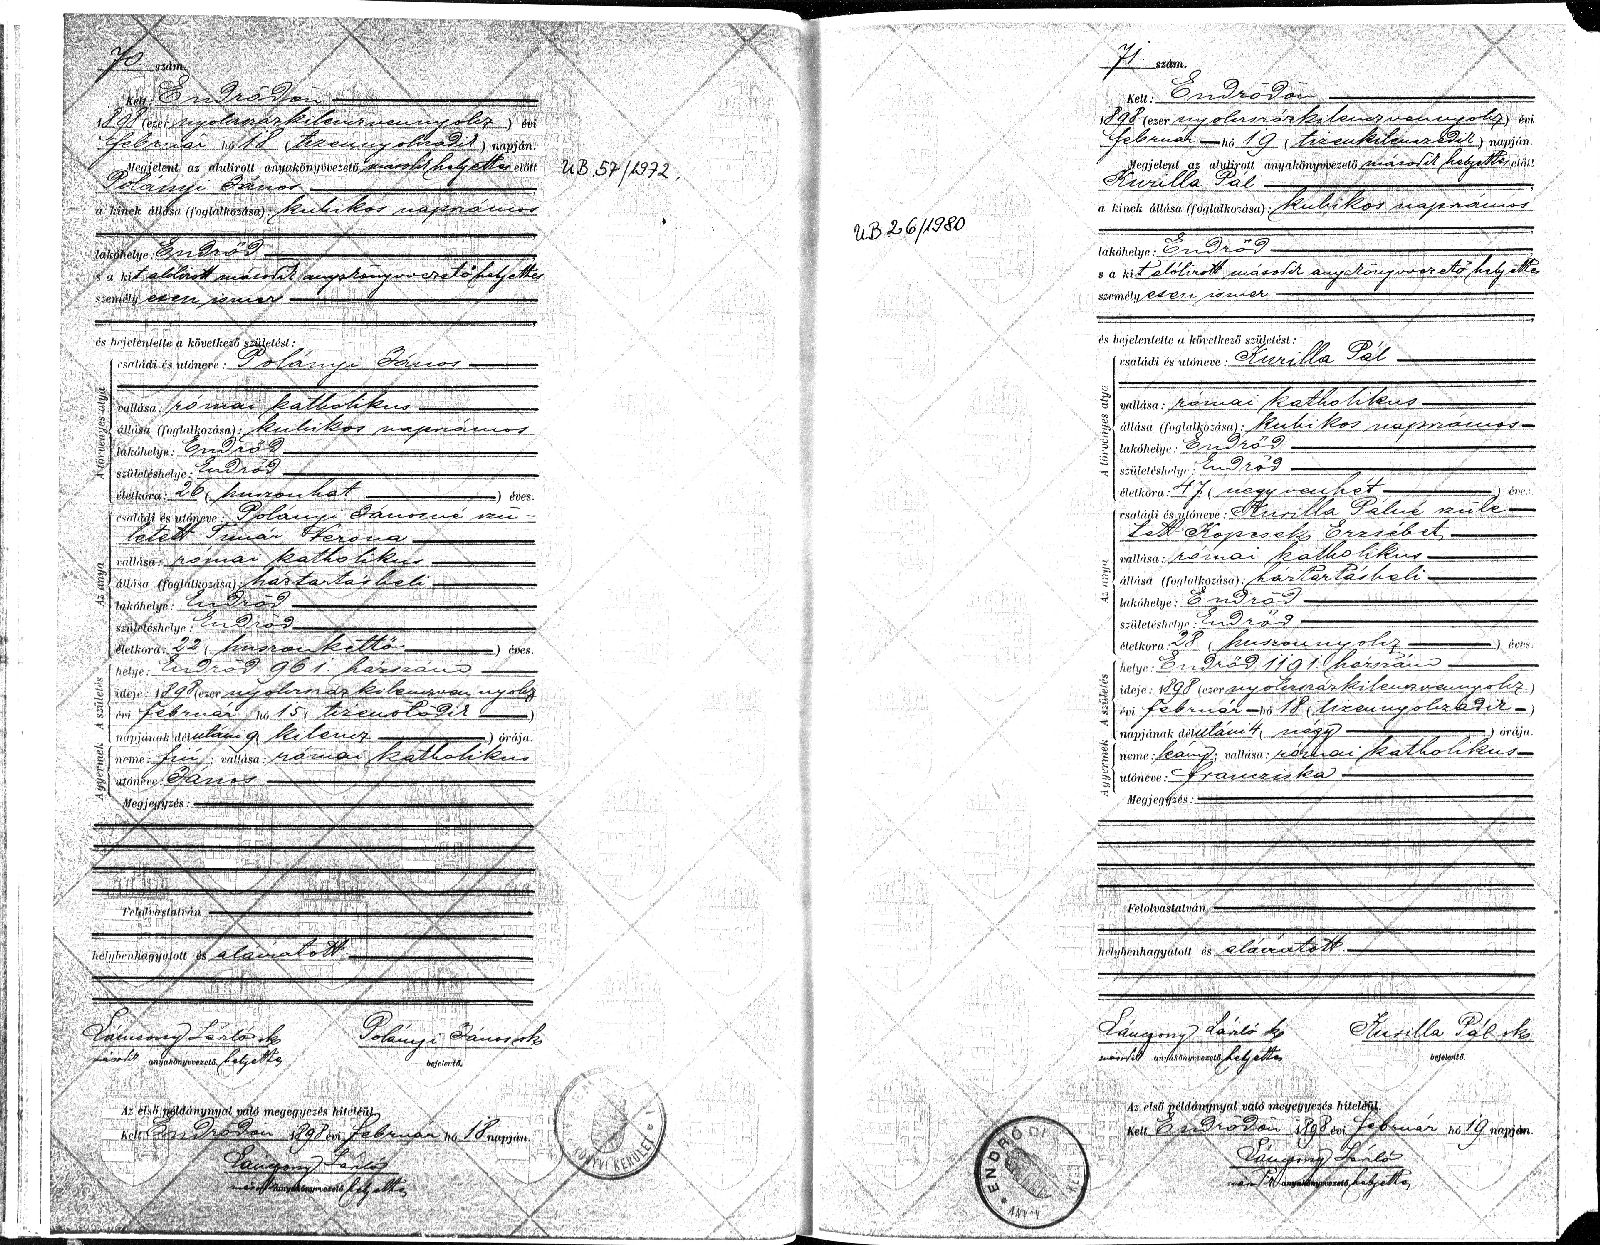 70 szám.
Kelt Endrődön
1898 (ezer nyolczszázkilenczvennyolcz) évi
február hó 18 (tizennyolczadik) napján.
Megjelent az alulirott anyakönyvvezető másodk helyettes előtt
Polányi János
a kinek állása (foglalkozása): kubikos napszámos
lakóhelye: Endrőd
s a kit alólirott másodk anyakönyvvezető helyettes
személyesen ismer
és bejelentette a következő születést:
A törvényes atya
családi és utóneve: Polányi János
vallása: római katholikus
állása (foglalkozása): kubikos napszámos
lakóhelye: Endrőd
születéshelye: Endrőd
életkora: 26 (huszonhat) éves.
Az anya
családi és utóneve: Polányi Jánosné szü-
letett Timár Verona
vallása: római katholikus
állása (foglalkozása): háztartásbeli
lakóhelye: Endrőd
születéshelye: Endrőd
életkora: 22 (huszonkettő) éves.
A születés
helye: Endrőd 961 házszám
ideje: 1898 (ezer nyolczszázkilenczvennyolcz
évi február hó 15 (tizenötödik)
napjának délutáni 9 (kilencz) órája.
A gyermek
neme: fiú; vallása: római katholikus
utóneve: János
Megjegyzés:
Felolvastatván
helybenhagyatott és aláiratott
Lánczony László sk Polányi János sk
másodk anyakönyvvezető helyettes bejelentő.
Az első példánynyal való megegyezés hiteléül
Kelt Endrődön 1898 évi február hó 18 napján.
Lánczony László
másodk anyakönyvvezető helyettes
UB 57/1972.
KÖNYVI KERÜLET
UB 26/1980
ENDRŐDI
ANYA
71 szám.
Kelt: Endrődön
1898 (ezer nyolczszázkilenczvennyolcz) évi
február hó 19 (tizenkilenczedik) napján
Megjelent az alulirott anyakönyvvezető másodk helyettes előtt
Kurilla Pál
a kinek állása (foglalkozása): kubikos napszámos
lakóhelye: Endrőd
s a kit alólirott másodk anyakönyvvezető helyettes
személyesen ismer
és bejelentette a következő születést:
A törvényes atya
családi és utóneve: Kurilla Pál
vallása: római katholikus
állása (foglalkozása): kubikos napszámos
lakóhelye: Endrőd
születéshelye: Endrőd
életkora: 47 (negyvenhét) éves:
Az anya
családi és utóneve: Kurilla Pálné szüle
tett Kopcsek Erzsébet
vallása: római katholikus
állása (foglalkozása): háztartásbeli
lakóhelye: Endrőd
születéshelye: Endrőd
életkora: 28 (huszonnyolcz) éves.
A születés
helye: Endrőd 1191 házszám
ideje: 1898 (ezer nyolczszázkilenczvennyolcz)
évi február hó 18 (tizennyolczadik)
napjának délutáni 4 (négy) órája.
A gyermek
neme: leány; vallása: római katholikus
utóneve: Francziska
Megjegyzés:
Felolvastatván,
helybenhagyatott és aláiratott
Lánczony László sk Kurilla Pál sk
másodk anyakönyvvezető helyettes bejelentő.
Az első példánynyal való megegyezés hiteléül.
Kelt Endrődön 1898 évi február hó 19 napján.
Lánczony László
másodk anyakönyvvezető helyettes